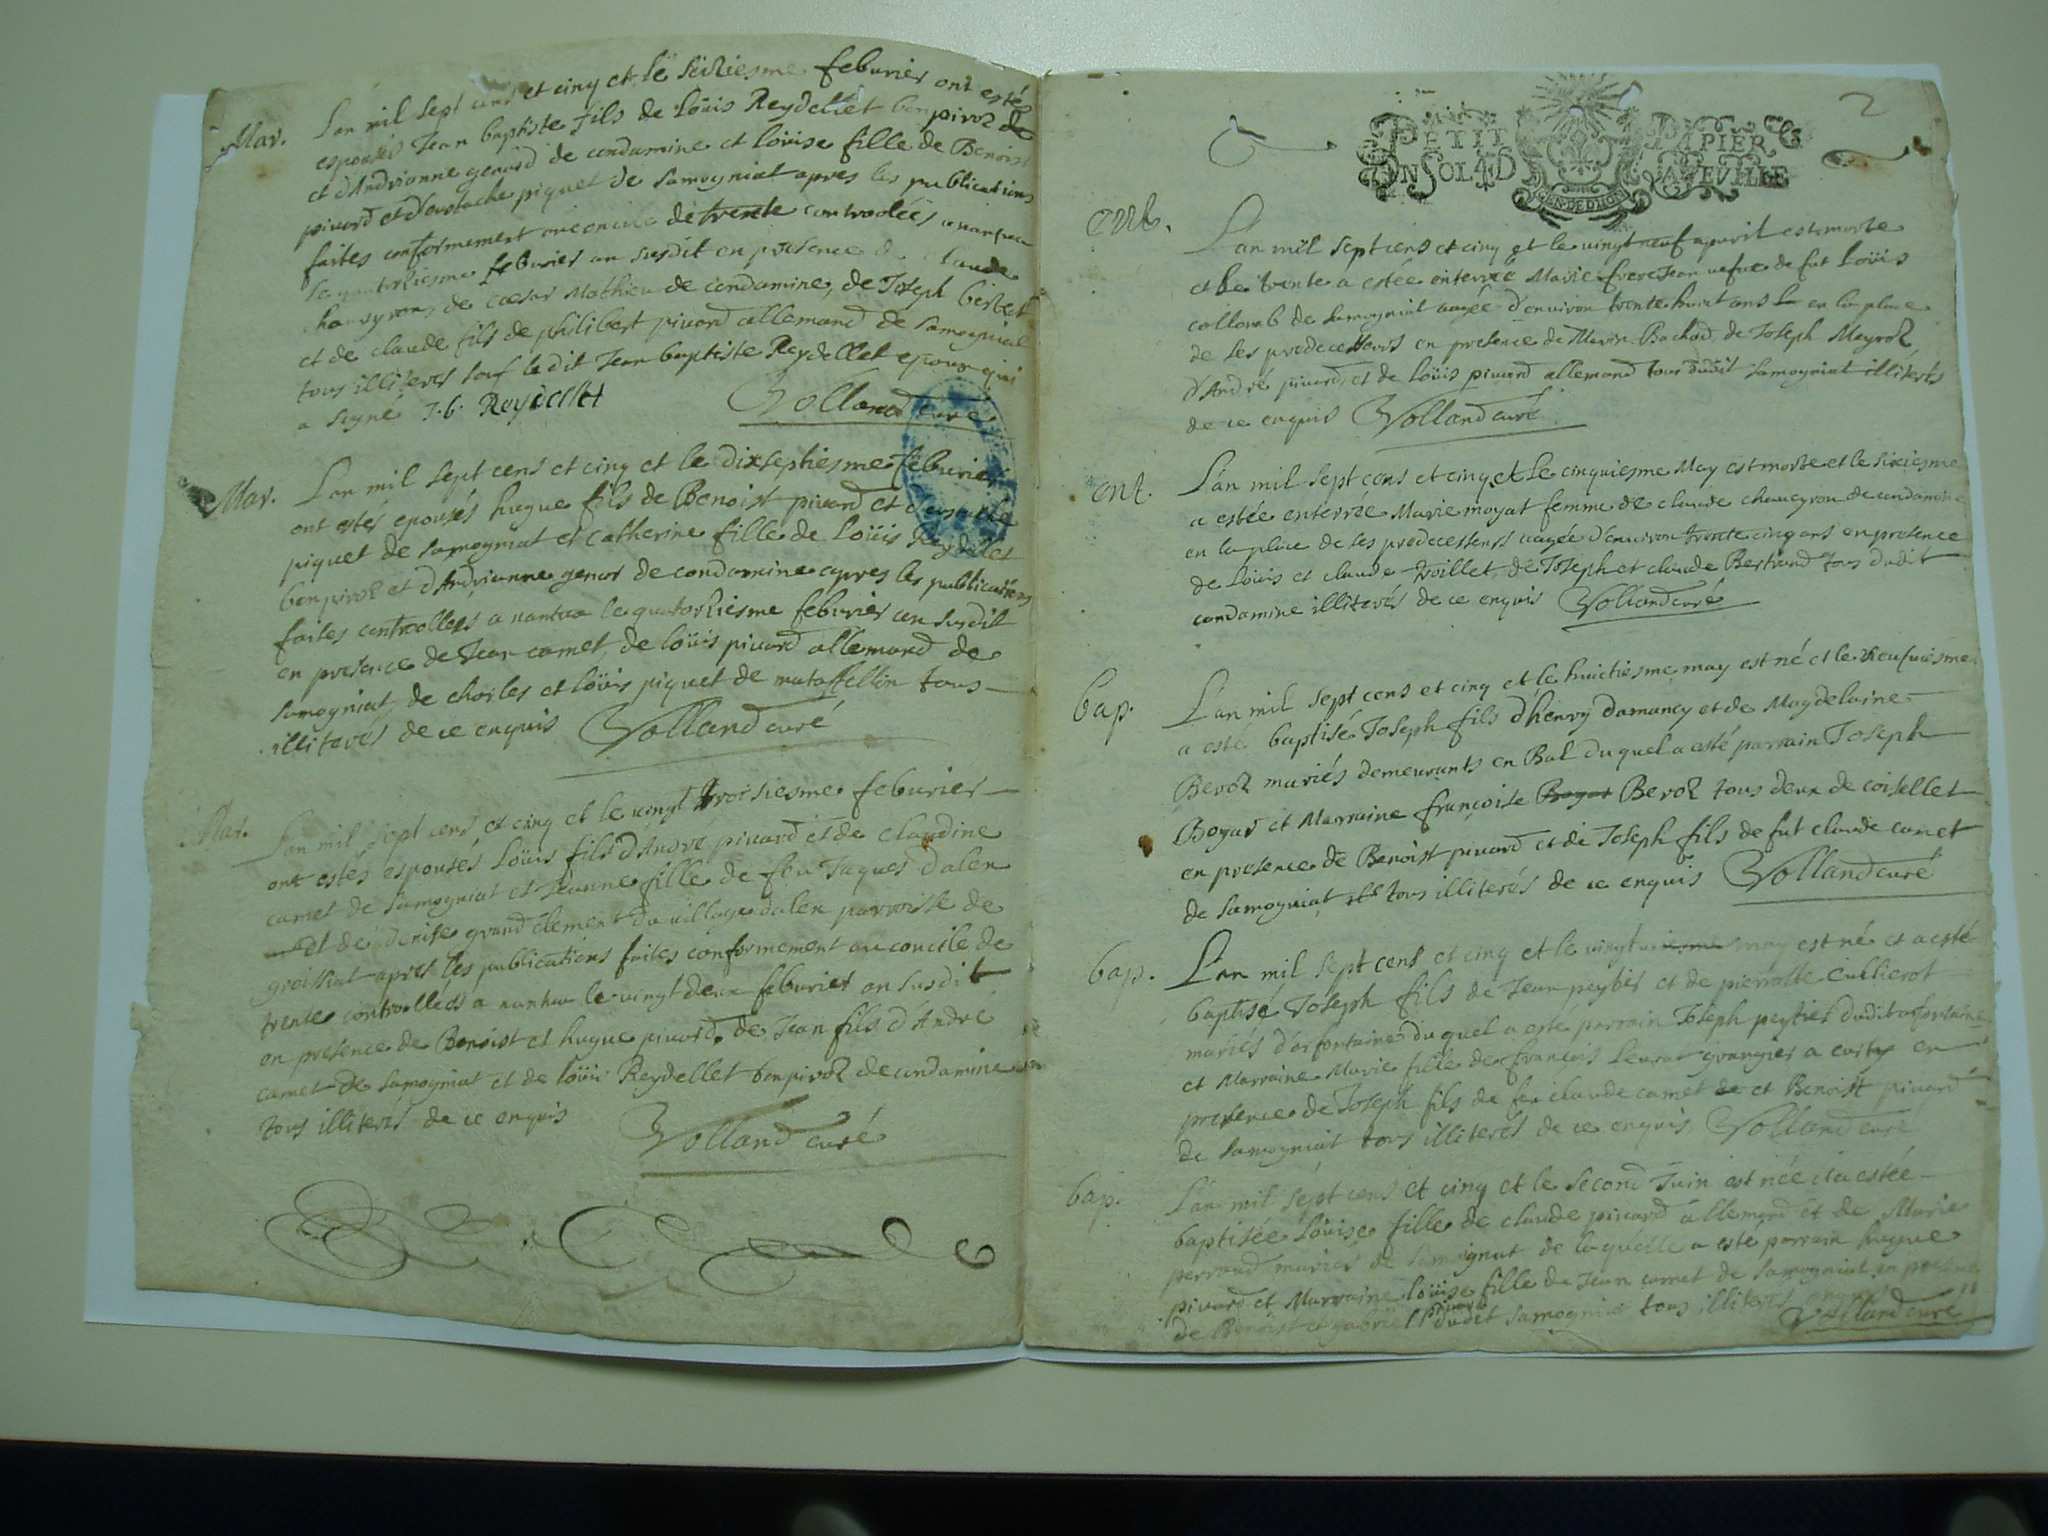 Mar. Lan mil sept cens et cinq et le seiziesme feburier ont estés
espousés Jean baptiste fils de Loüis Reydellet benpivoz de
et d'Andrianne genod de condamine et Loüise fille de Benoist
pivard et d'eustache piquet de Samogniat apres les publications
faites conformement au concile de trente controolées a nantua
le quatorziesme feburier an susdit en presence de Claude
chaueyron de cœsar Mathieu de condamine, de Joseph
et de claude fils de philibert pivard allemand de Samogniat
tous illiterés sauf le dit Jean baptiste Reydellet epoux qui
a signé J. b. Reydellet Volland curé
Mar. Lan mil sept cens et cinq et le dixseptiesme feburier
ont estés epousés hugue fils de Benoist pivard et d'eustache
piquet de Samogniat et Catherine fille de Loüis Reydellet
benpivoz et d'Andrianne genod de condamine apres les publications
faites controollees a nantua le quatorziesme feburier an susdit
en presence de Jean camet de loüis pivard allemand de
Samogniat, de charles et loüis piquet de mataffellon tous
illiterés de ce enquis Volland curé
Mar. Lan mil sept cens et cinq et le vingt troisiesme feburier
ont estés espousés Loüis fils d'André pivard et de claudine
camet de Samogniat et Jeanne fille de feu Jaques dalen
et de denise grand clement du village dalen parroisse de
groissiat apres les publications faites conformement au concile de
trente controollées a nantua le vingt deux feburier an susdit
en presence de Benoist et hugue pivard, de Jean fils d'André
camet de Samogniat et de loüis Reydellet benpivoz de condamine
tous illiterés de ce enquis Volland curé
2
PETIT PAPIER
UN SOL 4 D LA FEVILLE
GEN. DE DIION
ent. Lan mil sept cens et cinq et le vingt neuf apvril est morte
et le trente a estée enterrée Marie frereJean vefue de fut Loüis
collomb de Samogniat aagée d'environ trente huit ans en la place
de ses predecesseurs en presence de Marin Bachod, de Joseph Mayroz
d'André pivard et de Loüis pivard allemand tous dudit Samogniat illiterés
de ce enquis Volland curé
ent. Lan mil sept cens et cinq et le cinquiesme May est morte et le sixiesme
a estée enterrée Marie moyat femme de claude chaueyron de condamine
en la place de ses predecesseurs aagée d'environ trente cinq ans en presence
de Loüis et claude troillet, de Joseph et claude Bertrand tous dudit
condamine illiterés de ce enquis Volland curé
bap. Lan mil sept cens et cinq et le huictiesme may est né et le neufuiesme
a esté baptisé Joseph fils d'henry damancy et de Magdelaine
Beroz mariés demeurants en Bal duquel a esté parrain Joseph
Bogar et Marraine françoise Bogar Beroz tous deux de coisellet
en presence de Benoist pivard et de Joseph fils de fut claude camet
de Samogniat tous illiterés de ce enquis Volland curé
bap. Lan mil sept cens et cinq et le vingt may est né et a esté
baptisé Joseph fils de Jean peytier et de pierrotte Cullierot
mariés d'orfontaine duquel a esté parrain Joseph peytier dudit orfontaine
et Marraine Marie fille de françois Leurat grangier a cortz en
presence de Joseph fils de feu claude camet de et Benoist pivard
de Samogniat tous illiterés de ce enquis Volland curé
bap. Lan mil sept cens et cinq et le second Juin est née et a estée
baptisée Loüise fille de claude pivard allemand et de Marie
perraud mariés de Samogniat de laquelle a esté parrain hugue
pivard et Marraine Loüise fille de Jean camet de Samogniat en presence
de Benoist et gabriel pivard dudit Samogniat tous illiterés enquis Volland curé